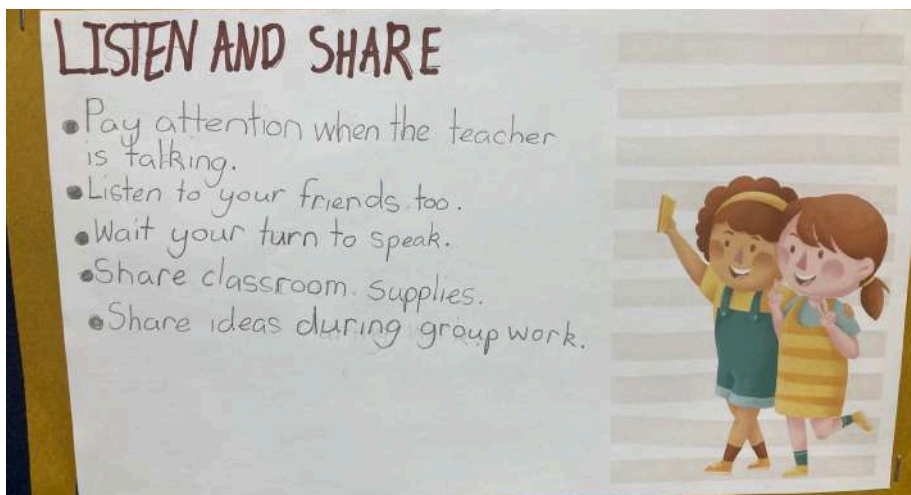 LISTEN AND SHARE
• Pay attention when the teacher
is talking.
• Listen to your friends too.
• Wait your turn to speak.
• Share classroom supplies.
• Share ideas during group work.